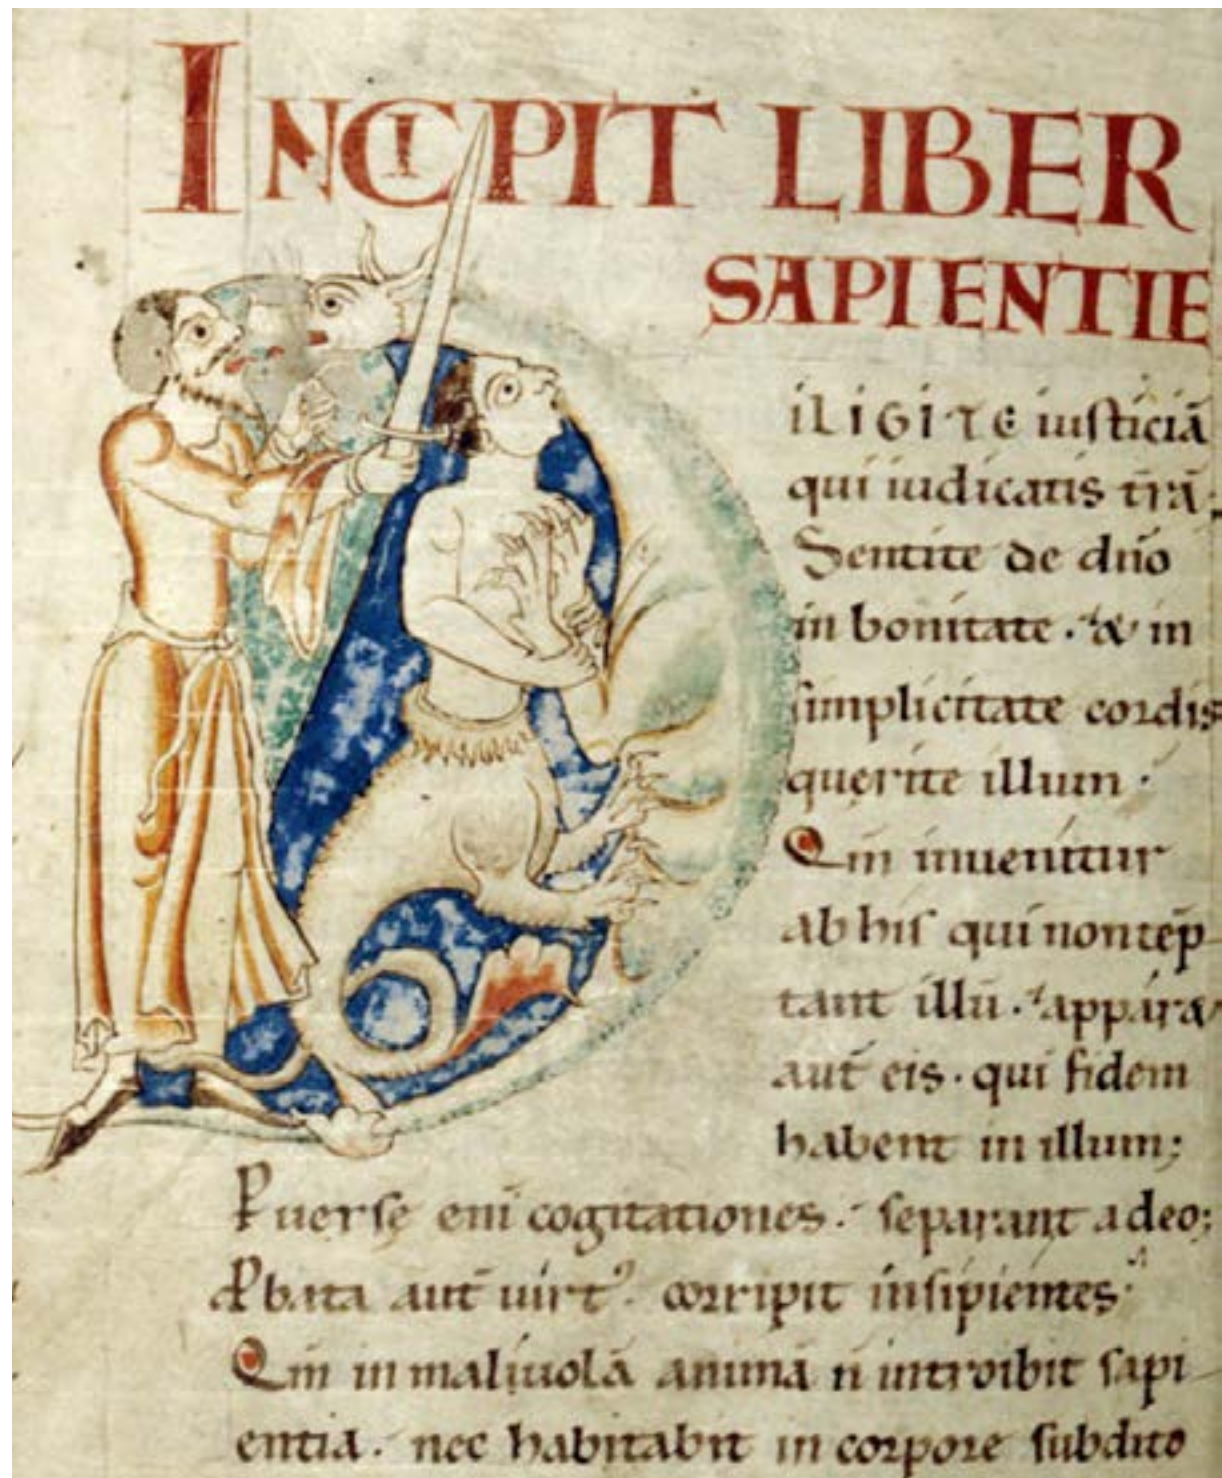 INCIPIT LIBER
SAPIENTIE
iLIGITE iusticiā
qui iudicatis t̄rā;
Sentite de dn̄o
in bonitate . & in
simplicitate cordis
querite illum .
Qm̄ inuenitur
ab his qui non tēp
tant illū . apparæ
aut̄ eis . qui fidem
habent in illum;
Puerse eni cogitationes . separant a deo;
Pbata aut̄ uirt᾽ . corripit insipientes .
Qm̄ in maliuolā animā n̄ introibit sapi
entia . nec habitabit in corpore subdito